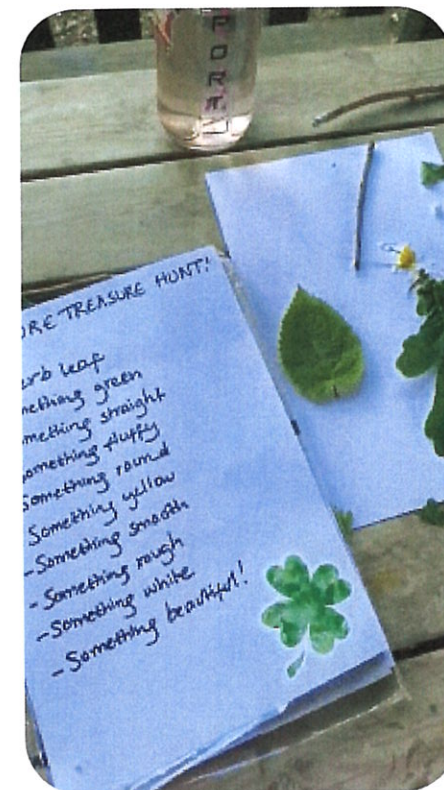 PORT
URE TREASURE HUNT!
erb leaf
mething green
mething straight
omething fluffy
Something round
Something yellow
-Something smooth
-Something rough
-Something white
-Something beautiful!